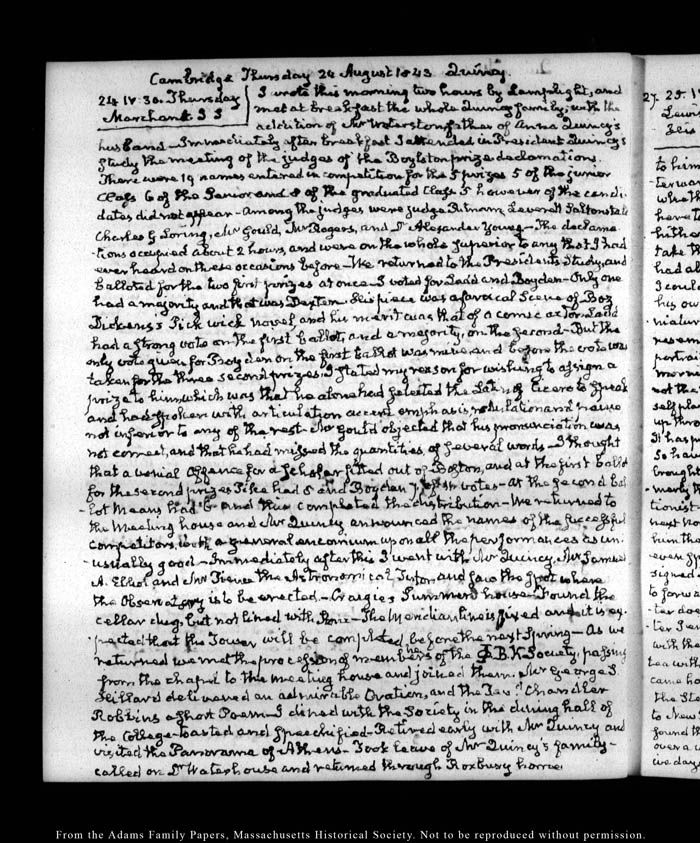 Cambridge Thursday 24 August 1843 Quincy.
24. IV. 30. Thursday
Marchant. S S
I wrote this morning two hours by Lamplight, and
met at breakfast the whole Quincy family, with the
addition of Mr Waterston father of Anna Quincy's
husband — Immediately after breakfast I attended in President Quincy's
Study the meeting of the judges of the Boylston prize declamations.
There were 19 names entered in competition for the 5 prizes 5 of the junior
Class 6 of the Senior and 8 of the graduated Class 5 however of the candi-
dates did not appear — Among the judges were judge Putnam, Leverett Saltonstall
Charles G Loring, Mr Gould, Mr Rogers, and Dr Alexander Young — The declama-
-tions occupied about 2 hours, and were on the whole superior to any that I had
ever heard on these occasions before — We returned to the Presidents Study, and
balloted for the two first prizes at once — I voted for Ladd and Boyden — Only one
had a majority and that was Dexter. His piece was a farcical Scene of Boz
Dickens's Pickwick novel, and his merit was that of a comic actor. Ladd
had a strong vote on the first ballot, and a majority, on the second — But the
only vote given for Boyden on the first ballot was mine and before the vote was
taken for the three second prizes I stated my reason for wishing to assign a
prize to him, which was that he alone had selected the Latin of Cicero to speak
and had spoken with articulation accent emphasis modulation and pause
not inferior to any of the rest — Mr Gould objected that his pronunciation was
not correct, and that he had missed the quantities, of several words — I thought
that a venial offence for a Scholar fitted out of Boston, and at the first ballot
for the second prizes had 5 and Boyden votes — at the second bal
-lot Means had 6 and this completed the distribution — We returned to
the Meeting house and Mr Quincy announced the names of the successful
competitors, with a general encomium upon all the performances as un-
usually good — Immediately after this I went with Mr Quincy, Mr Samuel
A. Elliot and Mr Pierce the Astronomical Tutor, and saw the spot where
the Observatory is to be erected — Craigie's Summer house — Found the
cellar dug, but not lined with Stone — The Meridian line is fixed and it is ex-
pected that the Tower will be completed before the next Spring — As we
returned we met the procession of members of the Φ.B.K Society, passing
from the chapel to the meeting house and joined them. Mr George S.
Hillard delivered an admirable Oration, and the Revd. Chandler
Robbins a short Poem — I dined with the Society in the dining hall of
the College — toasted and speechified — Retired early with Mr Quincy and
visited the Panorama of Athens — Took leave of Mr Quincy's family —
called on Dr Waterhouse and returned through Roxbury home.
27. 25. IV
to him
take th
had al
I coul
his ow
morni
not the
self pla
up thro
it has p
So hav
brought
tionist
next mo
him the
signed
to forwa
ter doe
with the
tea with
came ho
the Ste
to New
found th
over a c
ive day
From the Adams Family Papers, Massachusetts Historical Society. Not to be reproduced without permission.